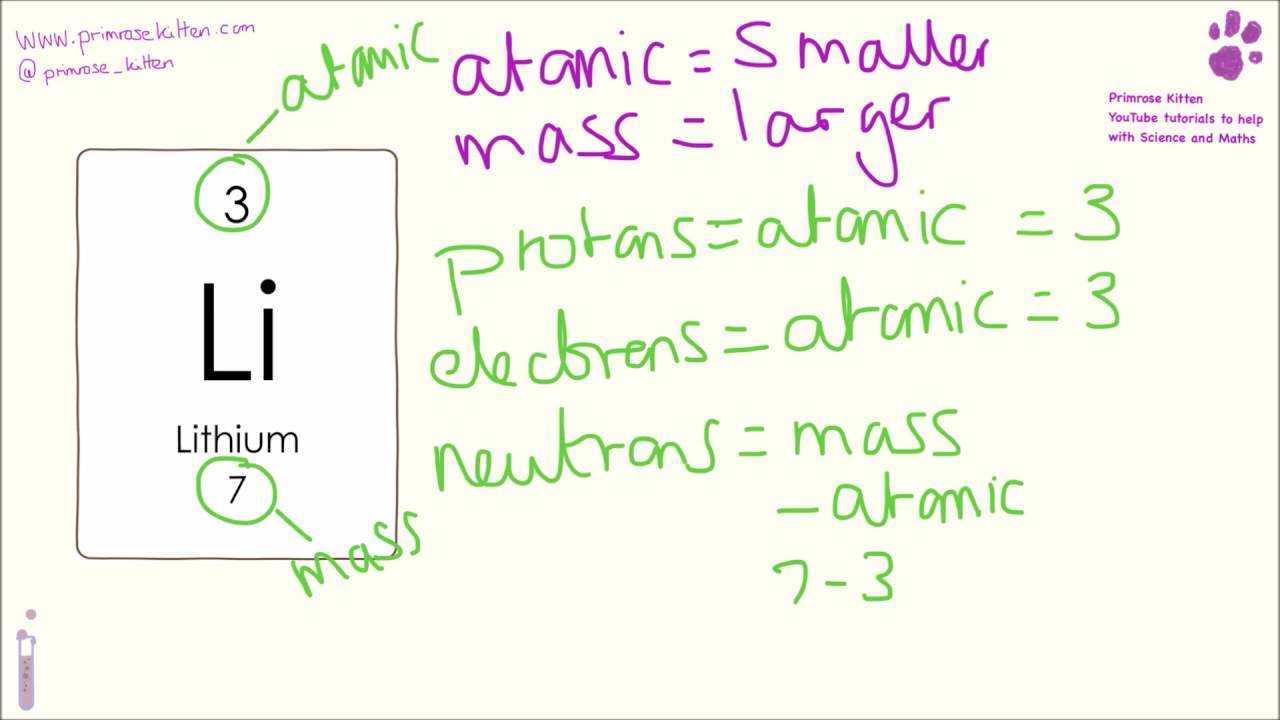 www.primrosekitten.com
@primrose_kitten
atomic
atomic = smaller
mass = larger
Primrose Kitten
YouTube tutorials to help
with Science and Maths
3
Li
Lithium
7
mass
protons = atomic = 3
electrons = atomic = 3
neutrons = mass
- atomic
7 - 3